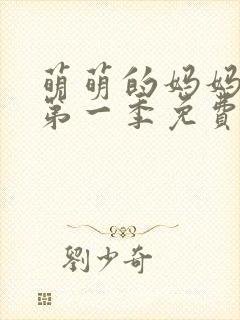 萌萌的妈妈
第一季免費
劉少奇